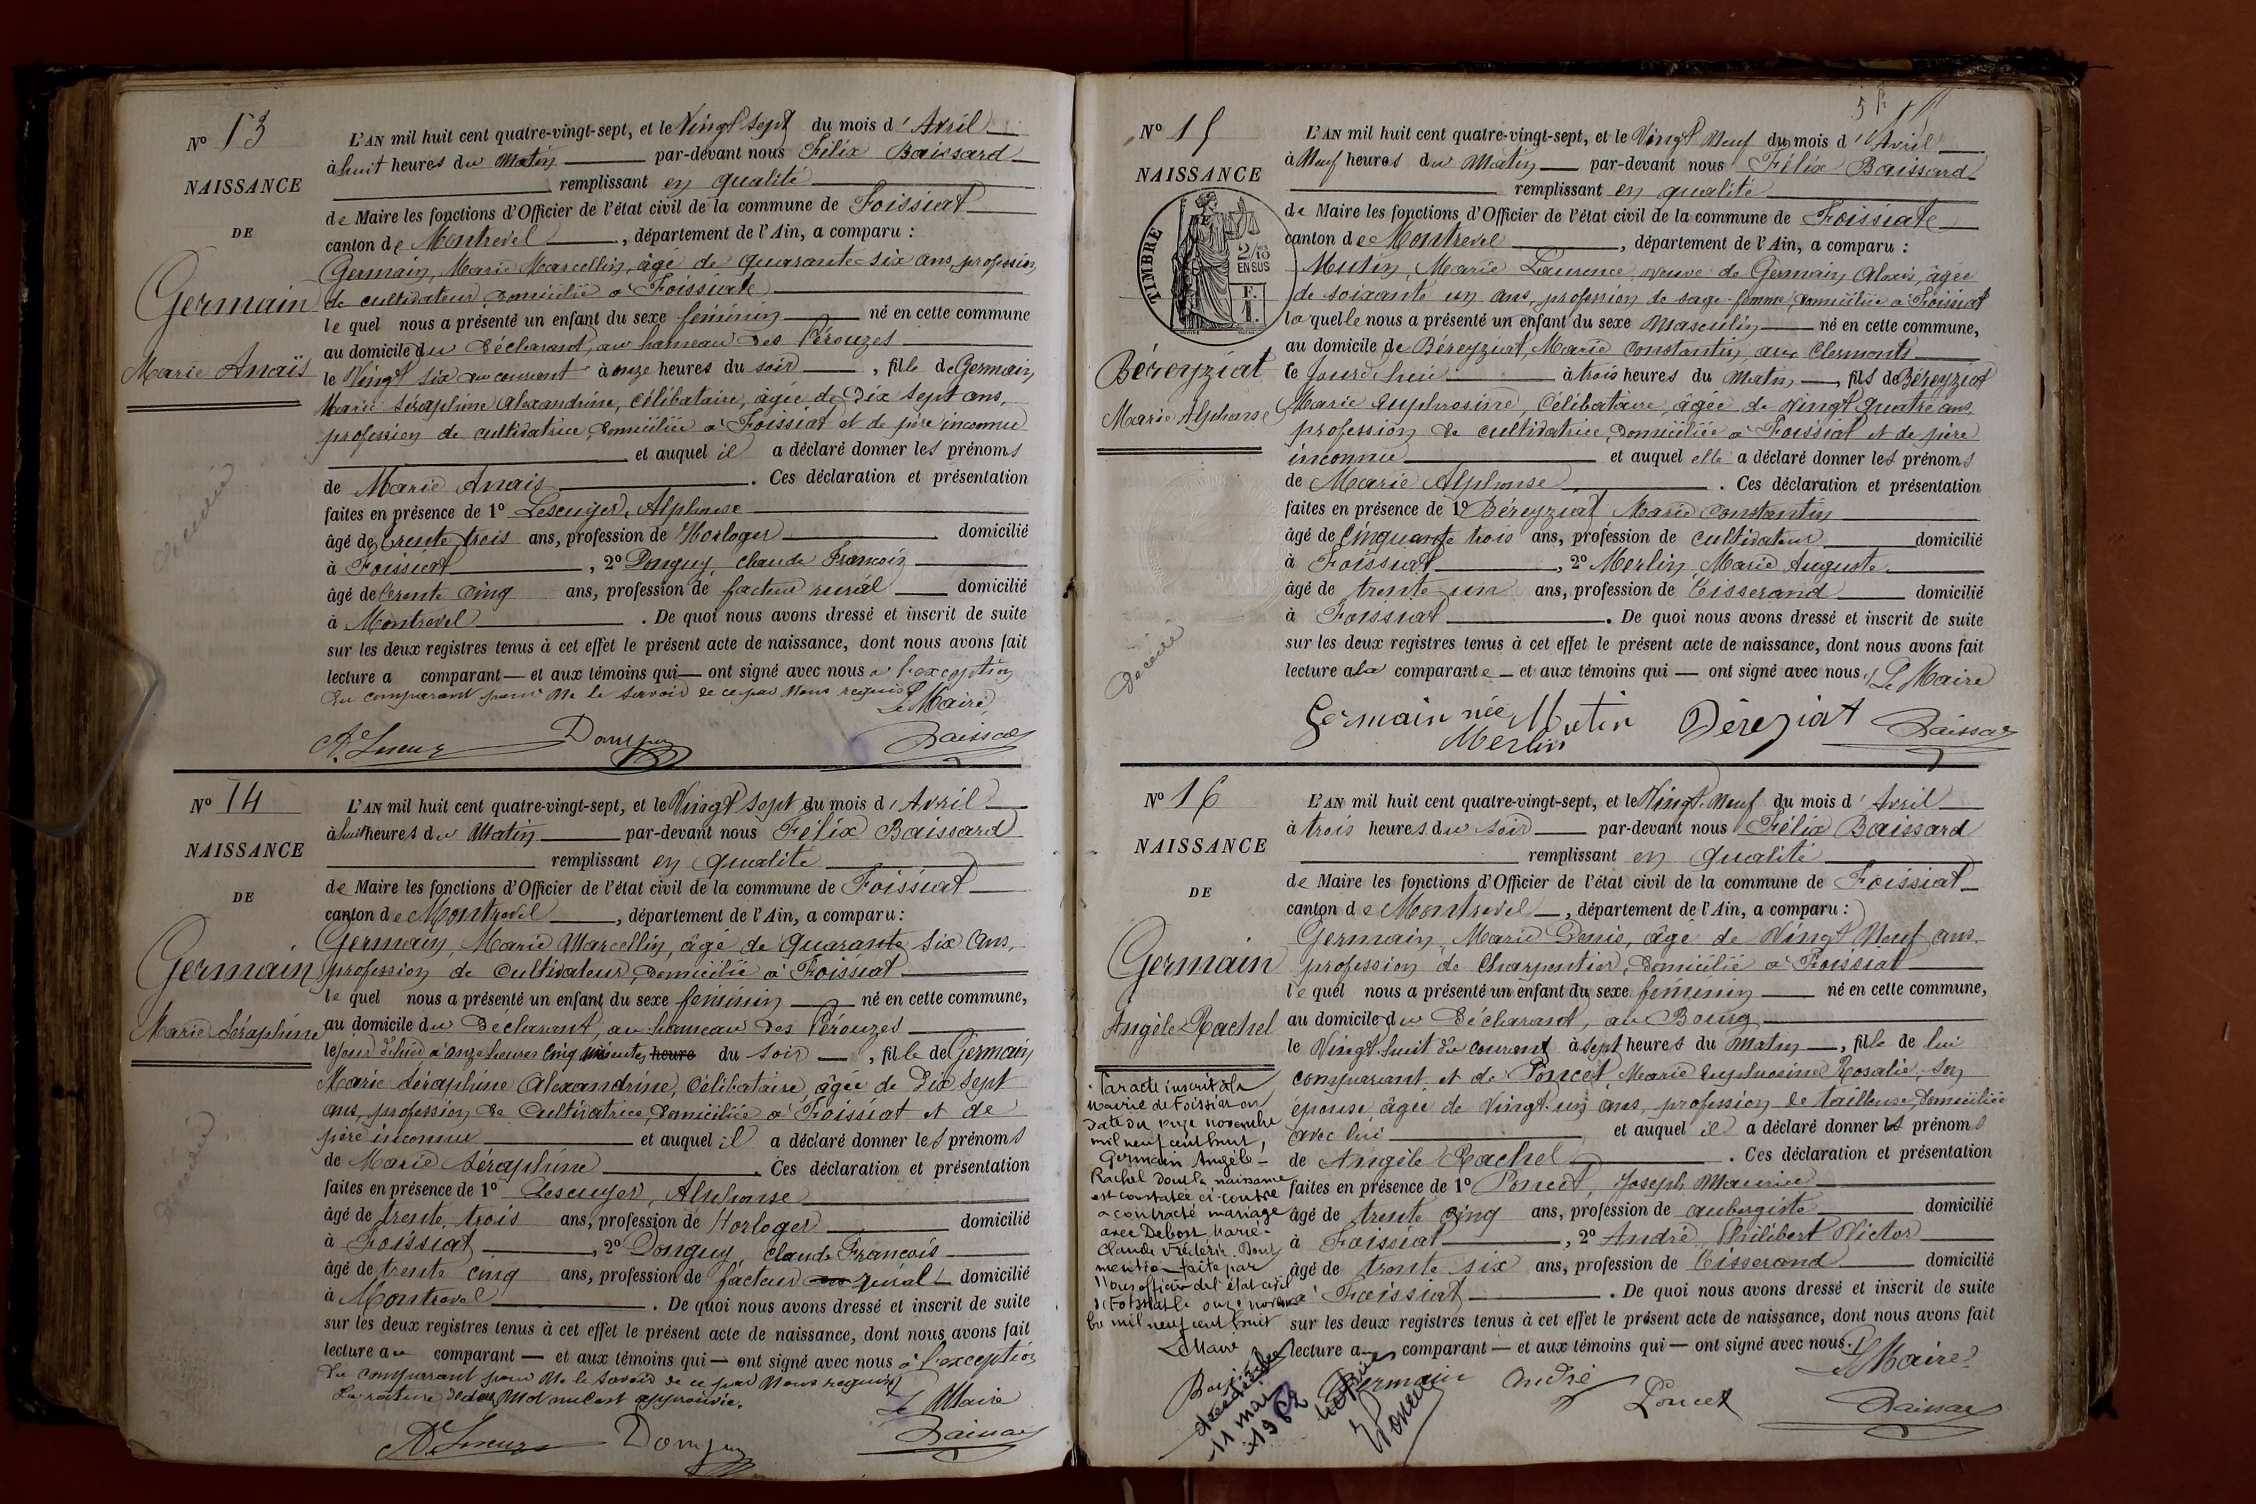 Nº 13
NAISSANCE
DE
Germain
Marie Anaïs
Décédée
L'AN mil huit cent quatre-vingt-sept, et le Vingt sept du mois d'Avril
à huit heures du Matin par-devant nous Félix Baissard
remplissant en qualité
de Maire les fonctions d'Officier de l'état civil de la commune de Foissiat
canton de Montrevel, département de l'Ain, a comparu :
Germain, Marie Marcellin, âgé de quarante-six ans, profession
de cultivateur, domicilié à Foissiat
le quel nous a présenté un enfant du sexe féminin né en cette commune
au domicile du Déclarant, au hameau des Pérouzes
le Vingt six du courant à onze heures du soir, fille de Germain
Marie Séraphine Alexandrine, célibataire, âgée de Dix sept ans,
profession de cultivatrice, domiciliée à Foissiat et de père inconnu
et auquel il a déclaré donner les prénoms
de Marie Anaïs. Ces déclaration et présentation
faites en présence de 1º Lescuyer, Alphonse
âgé de trente trois ans, profession de Horloger domicilié
à Foissiat, 2º Donguy, Claude François
âgé de trente cinq ans, profession de facteur rural domicilié
à Montrevel. De quoi nous avons dressé et inscrit de suite
sur les deux registres tenus à cet effet le présent acte de naissance, dont nous avons fait
lecture a comparant — et aux témoins qui — ont signé avec nous à l'exception
du comparant pour ne le savoir de ce par Nous requis
Le Maire
Baissard
Nº 14
NAISSANCE
DE
Germain
Marie Séraphine
Décédée
L'AN mil huit cent quatre-vingt-sept, et le Vingt sept du mois d'Avril
à huit heures du Matin par-devant nous Félix Baissard
remplissant en qualité
de Maire les fonctions d'Officier de l'état civil de la commune de Foissiat
canton de Montrevel, département de l'Ain, a comparu :
Germain, Marie Marcellin, âgé de quarante six ans,
profession de cultivateur, domicilié à Foissiat
le quel nous a présenté un enfant du sexe féminin né en cette commune,
au domicile du Déclarant, au hameau des Pérouzes
le jour d'hier à onze heures cinq minutes heure du soir, fille de Germain
Marie Séraphine Alexandrine, célibataire, âgée de Dix sept
ans, profession de cultivatrice, domiciliée à Foissiat et de
père inconnu et auquel il a déclaré donner les prénoms
de Marie Séraphine. Ces déclaration et présentation
faites en présence de 1º Lescuyer, Alphonse
âgé de trente trois ans, profession de Horloger domicilié
à Foissiat, 2º Donguy, Claude François
âgé de trente cinq ans, profession de facteur rural domicilié
à Montrevel. De quoi nous avons dressé et inscrit de suite
sur les deux registres tenus à cet effet le présent acte de naissance, dont nous avons fait
lecture au comparant — et aux témoins qui — ont signé avec nous à l'exception
du comparant pour ne le savoir de ce par Nous requis
La rature d'un mot nul est approuvée.
Le Maire
Baissard
Nº 15
NAISSANCE
TIMBRE
2/10
EN SUS
F.
1.
Béreyziat
Marie Alphonse
Décédé
L'AN mil huit cent quatre-vingt-sept, et le Vingt Neuf du mois d'Avril
à Neuf heures du Matin par-devant nous Félix Baissard
remplissant en qualité
de Maire les fonctions d'Officier de l'état civil de la commune de Foissiat
canton de Montrevel, département de l'Ain, a comparu :
Mutin, Marie Laurence, veuve de Germain Alexis, âgée
de soixante un ans, profession de sage-femme, domiciliée à Foissiat
laquelle nous a présenté un enfant du sexe Masculin né en cette commune,
au domicile de Béreyziat, Marie Constantin, aux Clermonts
le jourd'hui à trois heures du Matin, fils de Béreyziat
Marie Euphrosine, célibataire, âgée de vingt quatre ans,
profession de cultivatrice, domiciliée à Foissiat et de père
inconnu et auquel elle a déclaré donner les prénoms
de Marie Alphonse. Ces déclaration et présentation
faites en présence de 1º Béreyziat Marie Constantin
âgé de Cinquante trois ans, profession de cultivateur domicilié
à Foissiat, 2º Merlin, Marie Auguste
âgé de trente-un ans, profession de Tisserand domicilié
à Foissiat. De quoi nous avons dressé et inscrit de suite
sur les deux registres tenus à cet effet le présent acte de naissance, dont nous avons fait
lecture a la comparante — et aux témoins qui — ont signé avec nous.
Le Maire
Germain née Mutin Béreziat
Merlin Baissard
Nº 16
NAISSANCE
DE
Germain
Angèle Rachel
Par acte inscrit à la
mairie de Foissiat en
date du onze novembre
mil neuf cent huit,
Germain Angèle-
Rachel dont la naissance
est constatée ci-contre
a contracté mariage
avec Debost Marie-
Claude Frédéric. Dont
mention faite par
Nous officier de l'état civil
de Foissiat le onze novem-
bre mil neuf cent huit
Le Maire
décédée
11 mai
1962
L'AN mil huit cent quatre-vingt-sept, et le Vingt-Neuf du mois d'Avril
à trois heures du soir par-devant nous Félix Baissard
remplissant en qualité
de Maire les fonctions d'Officier de l'état civil de la commune de Foissiat
canton de Montrevel, département de l'Ain, a comparu :
Germain, Marie Denis, âgé de Vingt Neuf ans,
profession de Charpentier, domicilié à Foissiat
le quel nous a présenté un enfant du sexe féminin né en cette commune,
au domicile du Déclarant, au Bourg
le Vingt-huit du courant à sept heures du matin, fille de lui
comparant et de Poncet, Marie Euphrosine Rosalie, son
épouse âgée de Vingt-un ans, profession de tailleuse, domiciliée
avec lui et auquel il a déclaré donner les prénoms
de Angèle Rachel. Ces déclaration et présentation
faites en présence de 1º Poncet, Joseph Maurice
âgé de trente cinq ans, profession de aubergiste domicilié
à Foissiat, 2º André, Philibert Victor
âgé de trente six ans, profession de Tisserand domicilié
à Foissiat. De quoi nous avons dressé et inscrit de suite
sur les deux registres tenus à cet effet le présent acte de naissance, dont nous avons fait
lecture a comparant — et aux témoins qui — ont signé avec nous.
Le Maire
Germain André Poncet Baissard